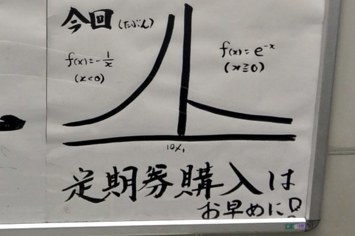 今回(たぶん)
f(x)=-1/x
(x<0)
f(x)=e^-x
(x≧0)
10/1
定期券購入は
お早めに!